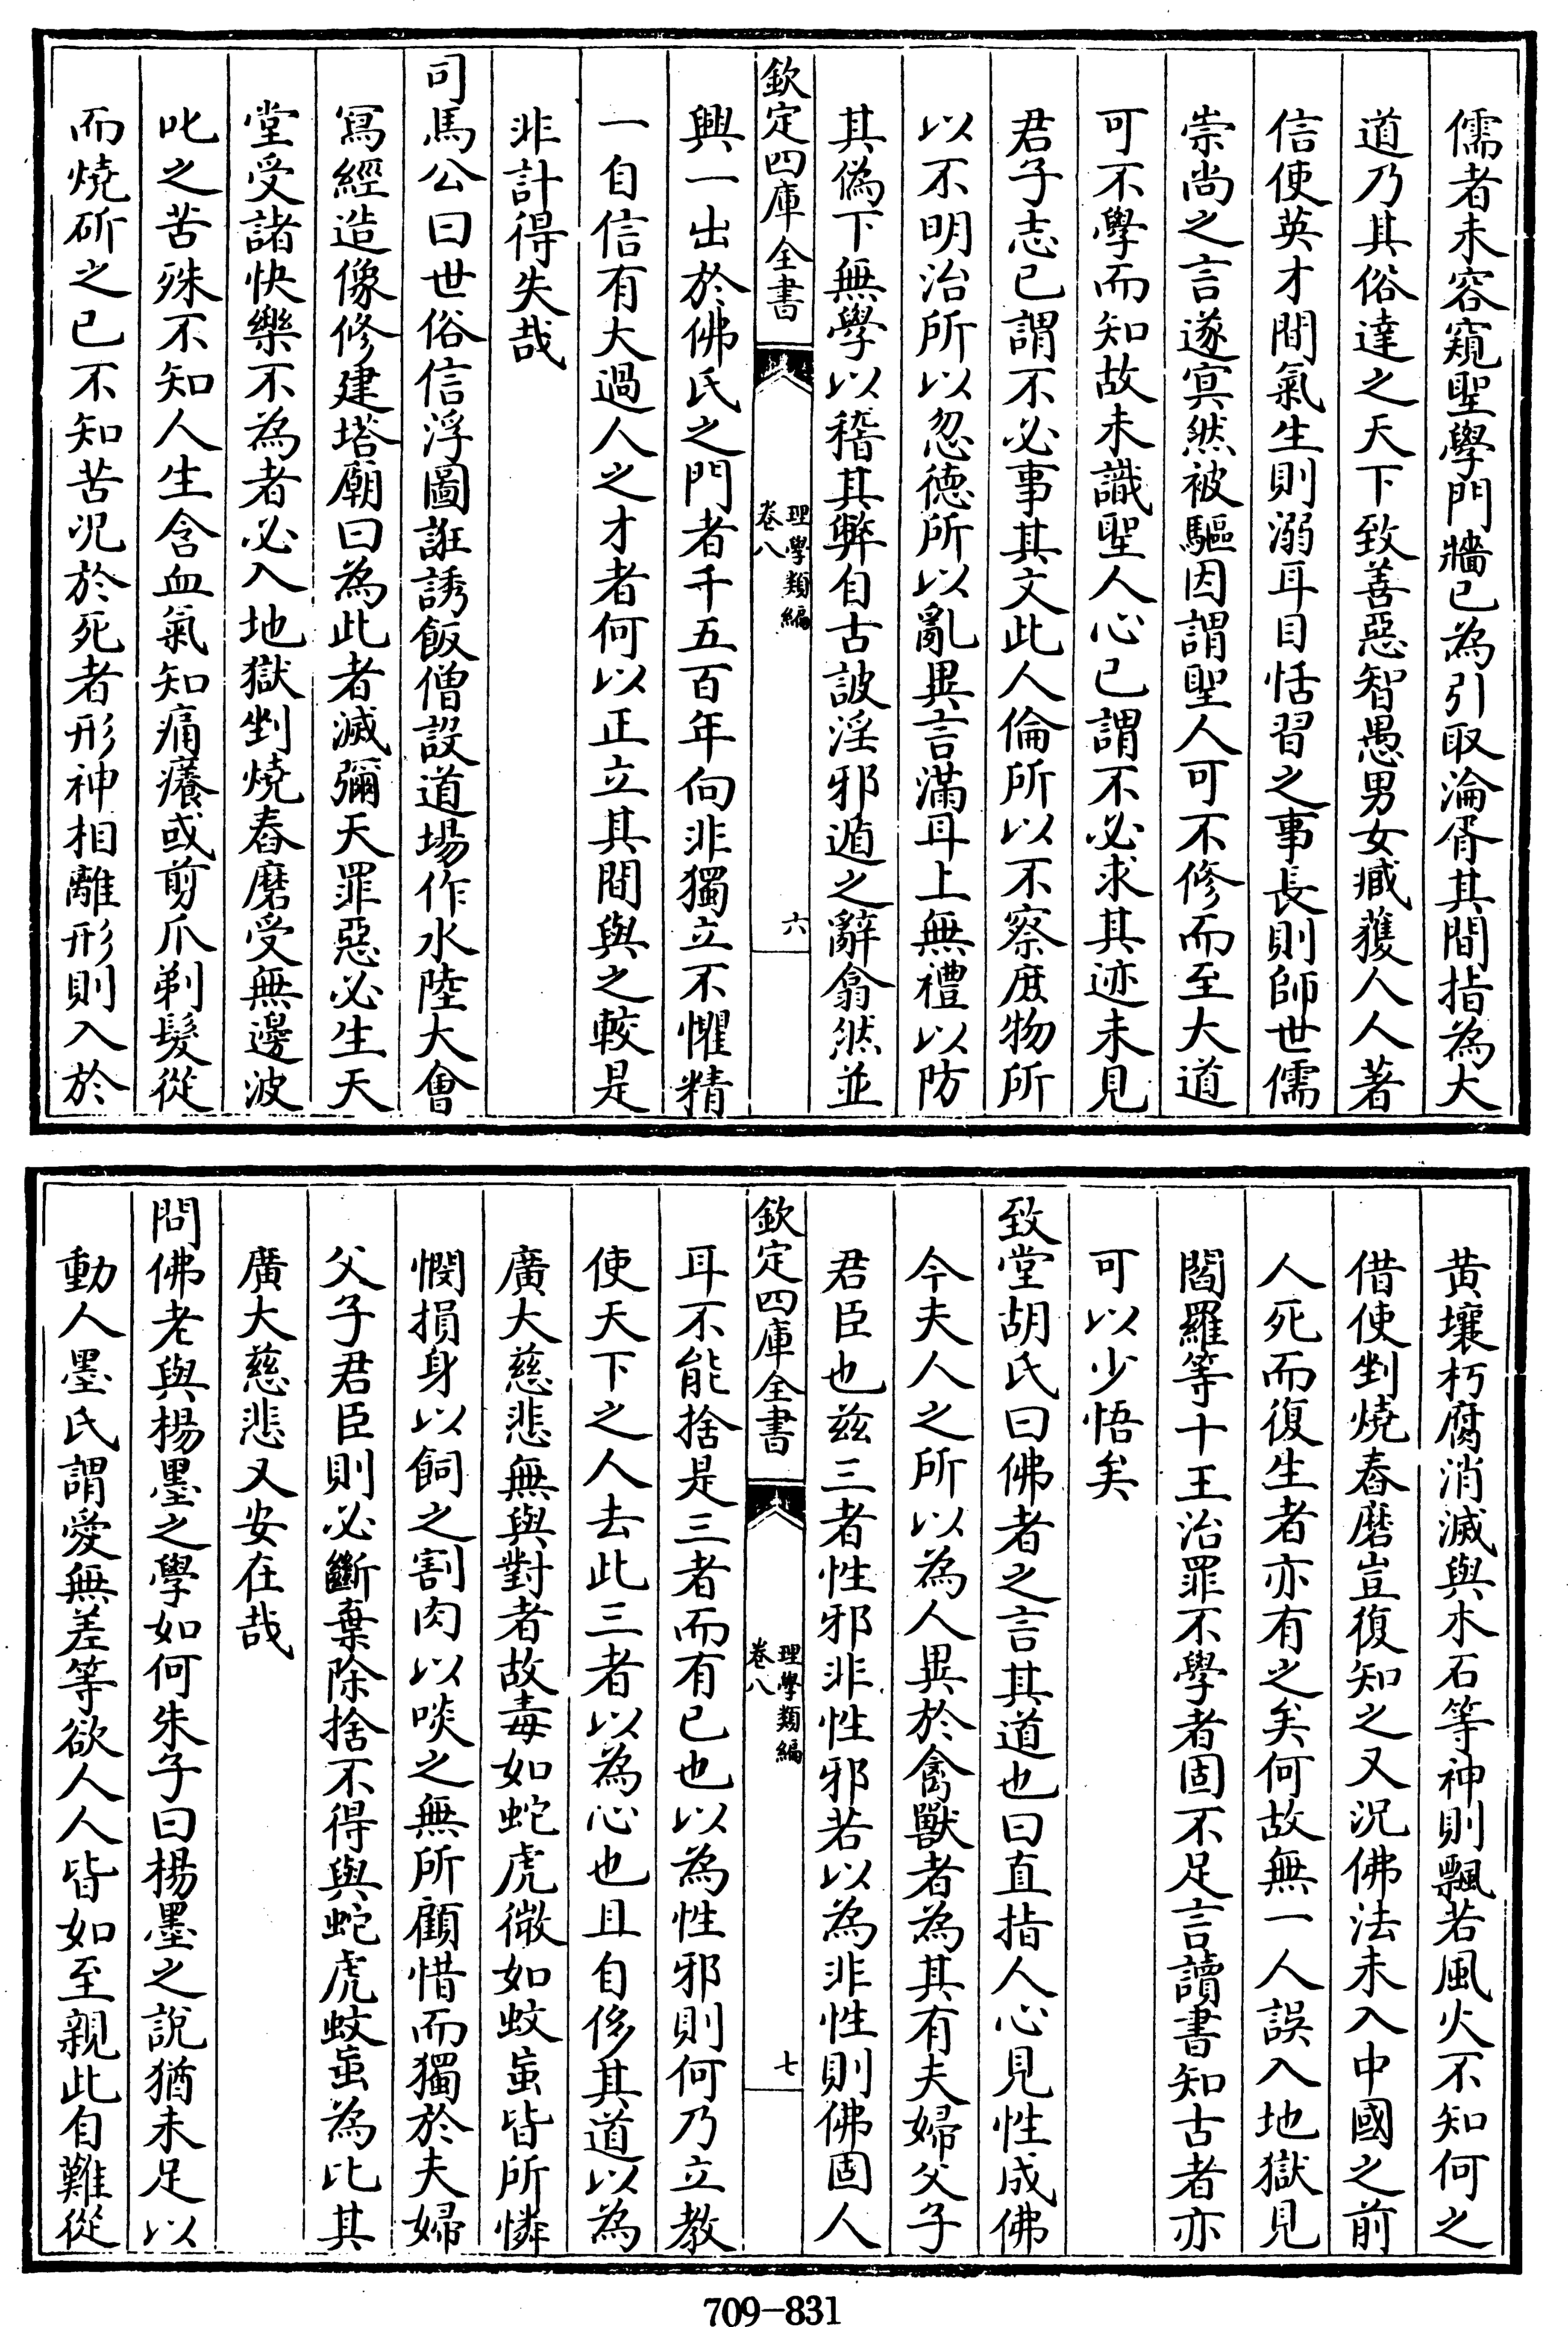 儒者未容窺聖學門牆已為引取淪胥其間指為大
道乃其俗達之天下致善惡智愚男女臧獲人人著
信使英才間氣生則溺耳目恬習之事長則師世儒
崇尚之言遂㝠然被驅因謂聖人可不修而至大道
可不學而知故未識聖人心已謂不必求其迹未見
君子志已謂不必事其文此人倫所以不察庶物所
以不明治所以忽德所以亂異言滿耳上無禮以防
其偽下無學以稽其弊自古詖淫邪遁之辭翕然並
欽定四庫全書
理學類編
卷八
六
興一出於佛氏之門者千五百年向非獨立不懼精
一自信有大過人之才者何以正立其間與之較是
非計得失哉
司馬公曰世俗信浮圖誑誘飯僧設道場作水陸大會
寫經造像修建塔廟曰為此者滅彌天罪惡必生天
堂受諸快樂不為者必入地獄剉燒舂磨受無邊波
吡之苦殊不知人生含血氣知痛癢或剪爪剃髮從
而燒斫之已不知苦況於死者形神相離形則入於
黄壤朽腐消滅與木石等神則飄若風火不知何之
借使剉燒舂磨豈復知之又況佛法未入中國之前
人死而復生者亦有之矣何故無一人誤入地獄見
閻羅等十王治罪不學者固不足言讀書知古者亦
可以少悟矣
致堂胡氏曰佛者之言其道也曰直指人心見性成佛
今夫人之所以為人異於禽獸者為其有夫婦父子
君臣也兹三者性邪非性邪若以為非性則佛固人
欽定四庫全書
理學類編
卷八
七
耳不能捨是三者而有已也以為性邪則何乃立教
使天下之人去此三者以為心也且自侈其道以為
廣大慈悲無與對者故毒如蛇虎微如蚊䖟皆所憐
憫損身以飼之割肉以啖之無所顧惜而獨於夫婦
父子君臣則必斷棄除捨不得與蛇虎蚊䖟為比其
廣大慈悲又安在哉
問佛老與楊墨之學如何朱子曰楊墨之說猶未足以
動人墨氏謂愛無差等欲人人皆如至親此自難從
709-831